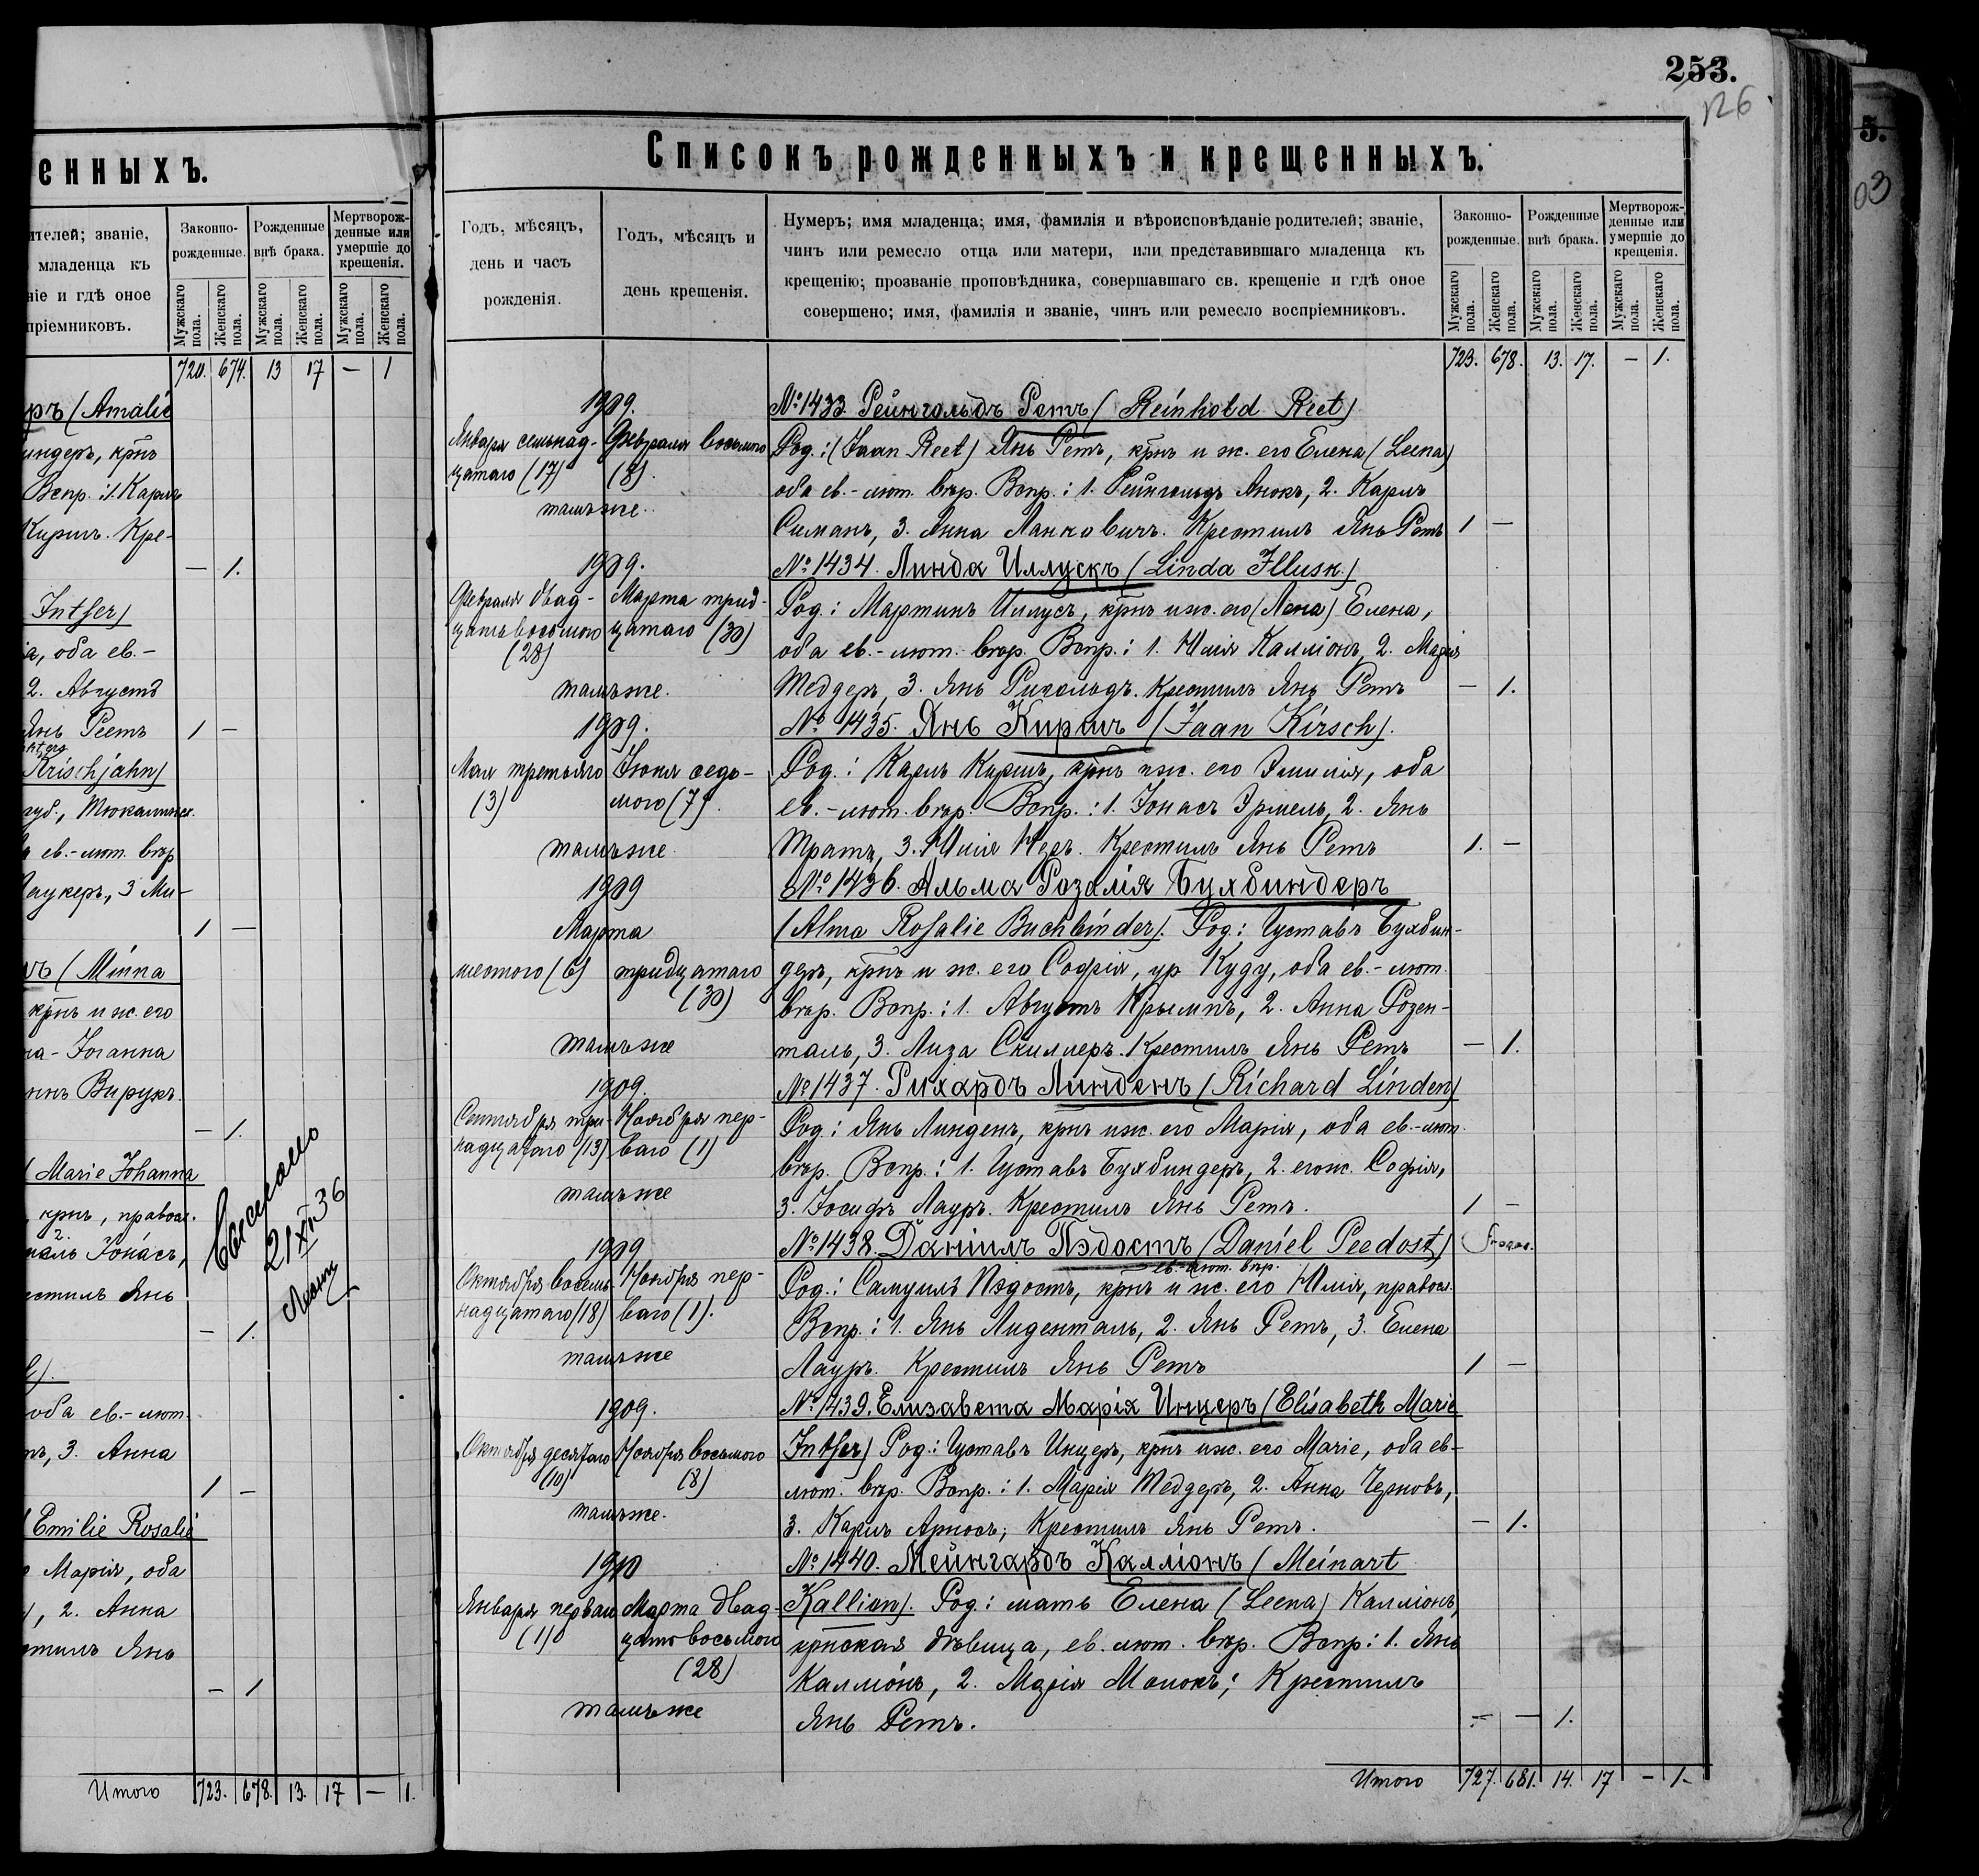 енныхъ.
ителей; званіе,
младенца къ
ніе и гдѣ оное
пріемниковъ.
Законно-
рожденные.
Рожденные
внѣ брака.
Мертворож-
денные или
умершіе до
крещенія.
Мужскаго пола.
Женскаго пола.
Мужскаго пола.
Женскаго пола.
Мужскаго пола.
Женскаго пола.
720. 674. 13 17 — 1
ръ (Amalie
индеръ, крнъ
Вспр.: 1. Карлъ
Киршъ. Кре-
— 1.
Intser)
а, оба ев.-
2. Августъ
Янъ Реетъ 1 —
Krischjahn)
губ., Тюкалинск.
ев.-лют. вѣр
Лаукеръ, 3 Ми-
1 —
нъ (Minna
крнъ и ж. его
на-Іоганна
Вирукъ.
— 1.
(Marie Johanna
, крнъ, правосл.
Іонасъ,
естилъ Янъ
— 1.
21 XI 36
оба ев.-лют.
ъ, 3. Анна
1 —
(Emilie Rosalie
Марія, оба
, 2. Анна
стилъ Янъ
— 1
Итого 723. 678. 13. 17 — 1.
253.
126
Списокъ рожденныхъ и крещенныхъ.
Годъ, мѣсяцъ,
день и часъ
рожденія.
Годъ, мѣсяцъ и
день крещенія.
Нумеръ; имя младенца; имя, фамилія и вѣроисповѣданіе родителей; званіе,
чинъ или ремесло отца или матери, или представившаго младенца къ
крещенію; прозваніе проповѣдника, совершавшаго св. крещеніе и гдѣ оное
совершено; имя, фамилія и званіе, чинъ или ремесло воспріемниковъ.
Законно-
рожденные.
Рожденные
внѣ брака.
Мертворож-
денные или
умершіе до
крещенія.
Мужскаго пола.
Женскаго пола.
Мужскаго пола.
Женскаго пола.
Мужскаго пола.
Женскаго пола.
723. 678. 13. 17. — 1.
1909. № 1433. Рейнгольдъ Ретъ (Reinhold Reet)
Января семнад- Февраля восьмого Род.: (Jaan Reet) Янъ Ретъ, крнъ и ж. его Елена (Leena)
цатаго (17) (8). оба ев.-лют. вѣр. Вспр.: 1. Рейнгольдъ Анокъ, 2. Карлъ
тамъ же. Симанъ, 3. Анна Ланковичъ. Крестилъ Янъ Ретъ 1 —
1909. № 1434. Линда Иллускъ (Linda Illusk.)
Февраля двад- Марта трид- Род.: Мартинъ Иллусъ, крнъ и ж. его (Лена) Елена,
цать восьмого цатаго (30) оба ев.-лют. вѣр. Вспр.: 1. Юлія Калліонъ, 2. Марія
(28)
тамъ же. Тедеръ, 3. Янъ Рихольдъ. Крестилъ Янъ Ретъ — 1.
1909. № 1435. Янъ Киршъ (Jaan Kirsch).
Мая третьяго Іюня седь- Род.: Карлъ Киршъ, крнъ и ж. его Эмилія, оба
(3) мого (7). ев.-лют. вѣр. Вспр.: 1. Іонасъ Эрмель, 2. Янъ
тамъ же. Тратъ, 3. Юлія Крестилъ Янъ Ретъ 1. —
1909 № 1436. Альма Розалія Бухбиндеръ
Марта (Alma Rosalie Buchbinder). Род.: Густавъ Бухбин-
шестого (6) тридцатаго деръ, крнъ и ж. его Софія, ур Куду, оба ев.-лют.
(30) вѣр. Вспр.: 1. Августъ Крымпъ, 2. Анна Розен-
тамъ же таль, 3. Лиза Скиллеръ. Крестилъ Янъ Ретъ — 1.
1909. № 1437. Рихардъ Линденъ (Richard Linden)
Сентября три- Ноября пер- Род.: Янъ Линденъ, крнъ и ж. его Марія, оба ев.-лют.
надцатаго (13) ваго (1) вѣр. Вспр.: 1. Густавъ Бухбиндеръ, 2. его ж. Софія,
тамъ же 3. Іосифъ Лауръ. Крестилъ Янъ Ретъ. 1 —
1909 № 1438. Даніилъ Пэдостъ (Daniel Peedost)
ев.-лют. вѣр.
Октября восем- Ноября пер- Род.: Самуилъ Пэдостъ, крнъ и ж. его Юлія, правосл.
надцатаго (18) ваго (1). Вспр.: 1. Янъ Лиденталь, 2. Янъ Ретъ, 3. Елена
тамъ же Лауръ. Крестилъ Янъ Ретъ 1 —
1909. № 1439. Елизавета Марія Инцеръ (Elisabeth Marie
Октября десятаго Ноября восьмого Intser) Род.: Густавъ Инцеръ, крнъ и ж. его Marie, оба ев-
(10) (8) лют. вѣр. Вспр.: 1. Марія Тедеръ, 2. Анна Черновъ,
тамъ же. 3. Карлъ Арносъ; Крестилъ Янъ Ретъ. — 1.
1910 № 1440. Мейнгардъ Калліонъ (Meinart
Января перваго Марта двад- Kallion). Род.: мать Елена (Leena) Калліонъ,
(1) цать восьмого крнская дѣвица, ев. лют. вѣр. Вспр: 1. Янъ
(28) Калліонъ, 2. Марія Монокъ; Крестилъ
тамъ же Янъ Ретъ. — — 1.
Итого 727. 681. 14. 17 — 1.
5.
03